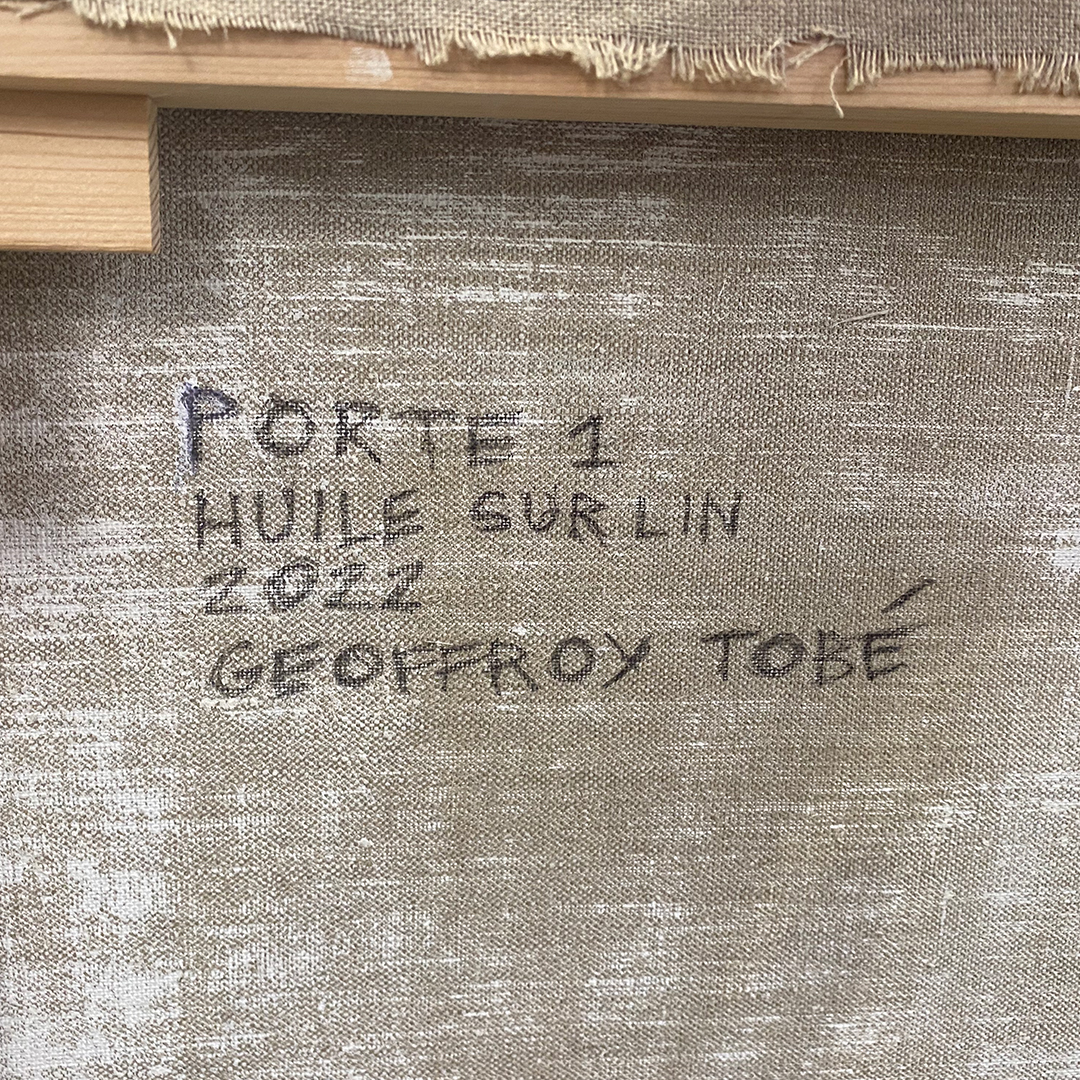 PORTE 1
HUILE SUR LIN
2022
GEOFFROY TOBÉ